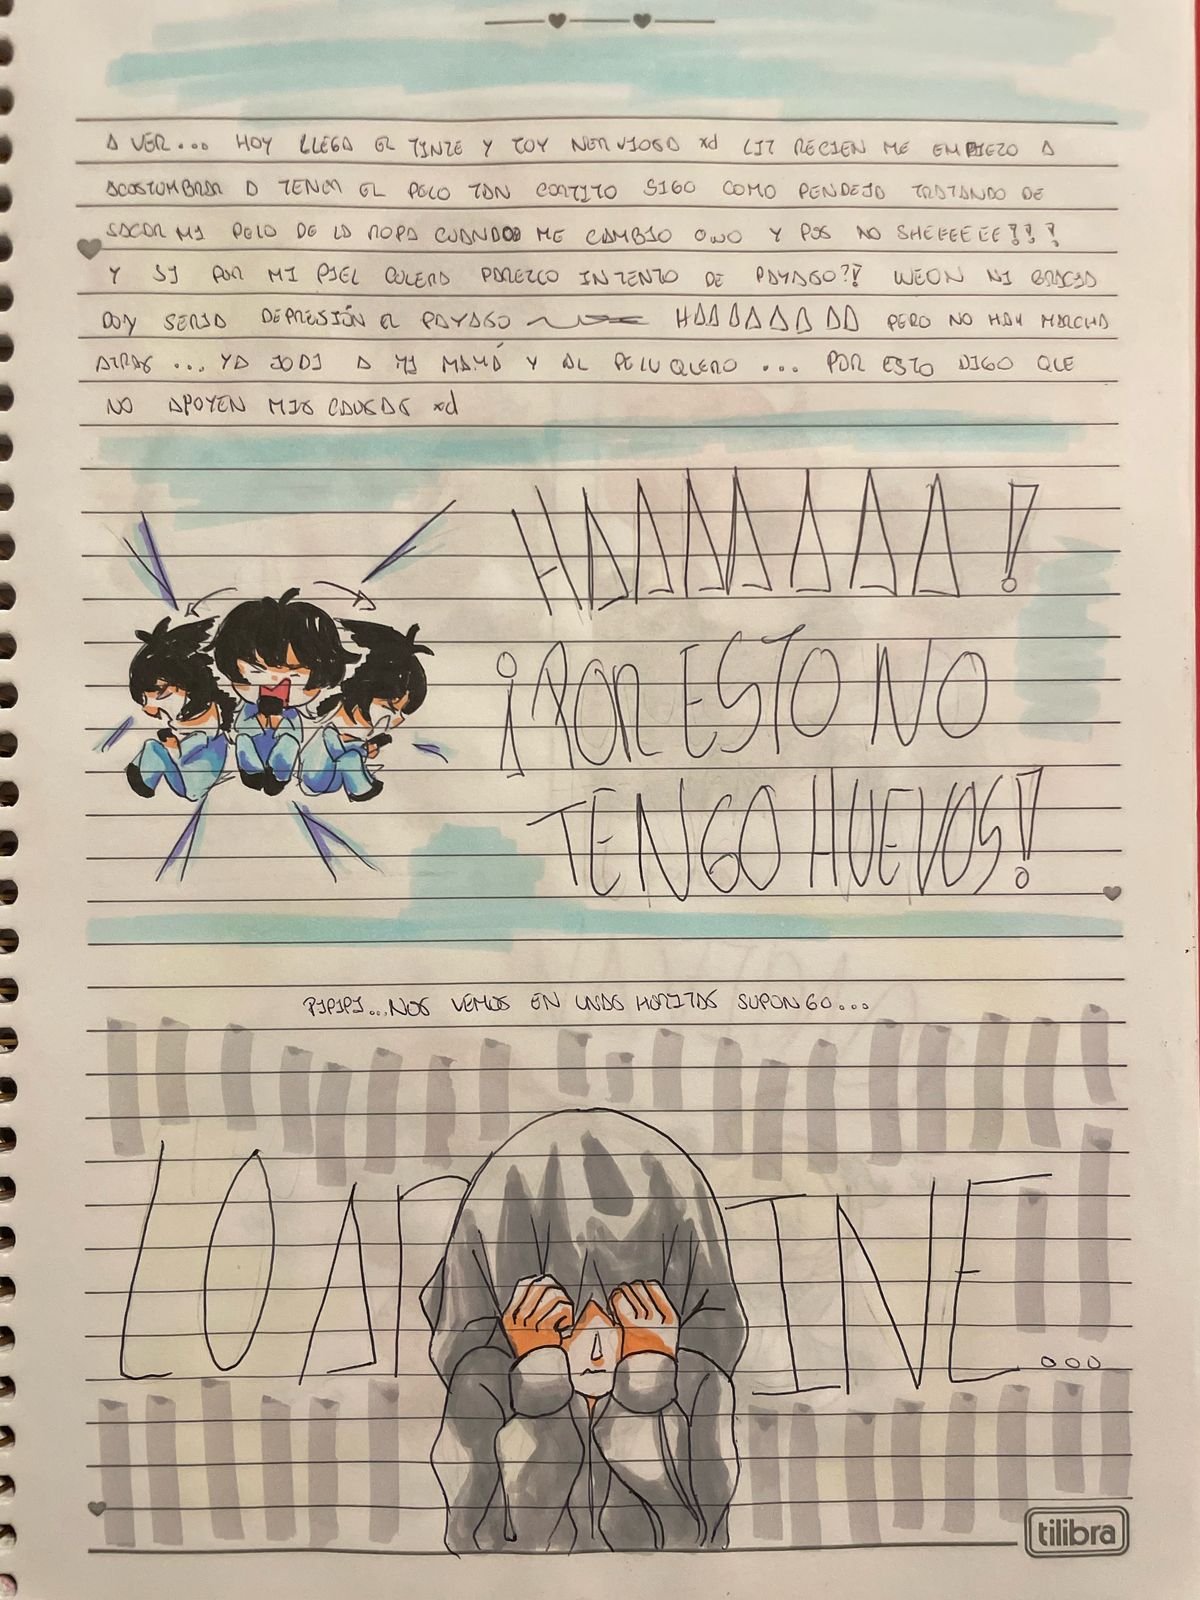 A VER... HOY LLEGA EL TINTE Y TOY NERVIOSA xd LIT RECIEN ME EMPIEZO A
ACOSTUMBRAR A TENER EL PELO TAN CORTITO SIGO COMO PENDEJA TRATANDO DE
SACAR MI PELO DE LA ROPA CUANDO ME CAMBIO OWO Y POS NO SHEEEEEE???
Y SI POR MI PIEL CULERA PAREZCO INTENTO DE PAYASO?! WEON NI GRACIA
DOY SERIA DEPRESIÓN EL PAYASO HAAAAAAAA PERO NO HAY MARCHA
ATRAS ... YA JODI A MI MAMÁ Y AL PELUQUERO ... POR ESTO DIGO QUE
NO APOYEN MIS CAUSAS xd
HAAAAAAA!
¡POR ESTO NO
TENGO HUEVOS!
PIPIPI...NOS VEMOS EN UNAS HORITAS SUPONGO...
tilibra